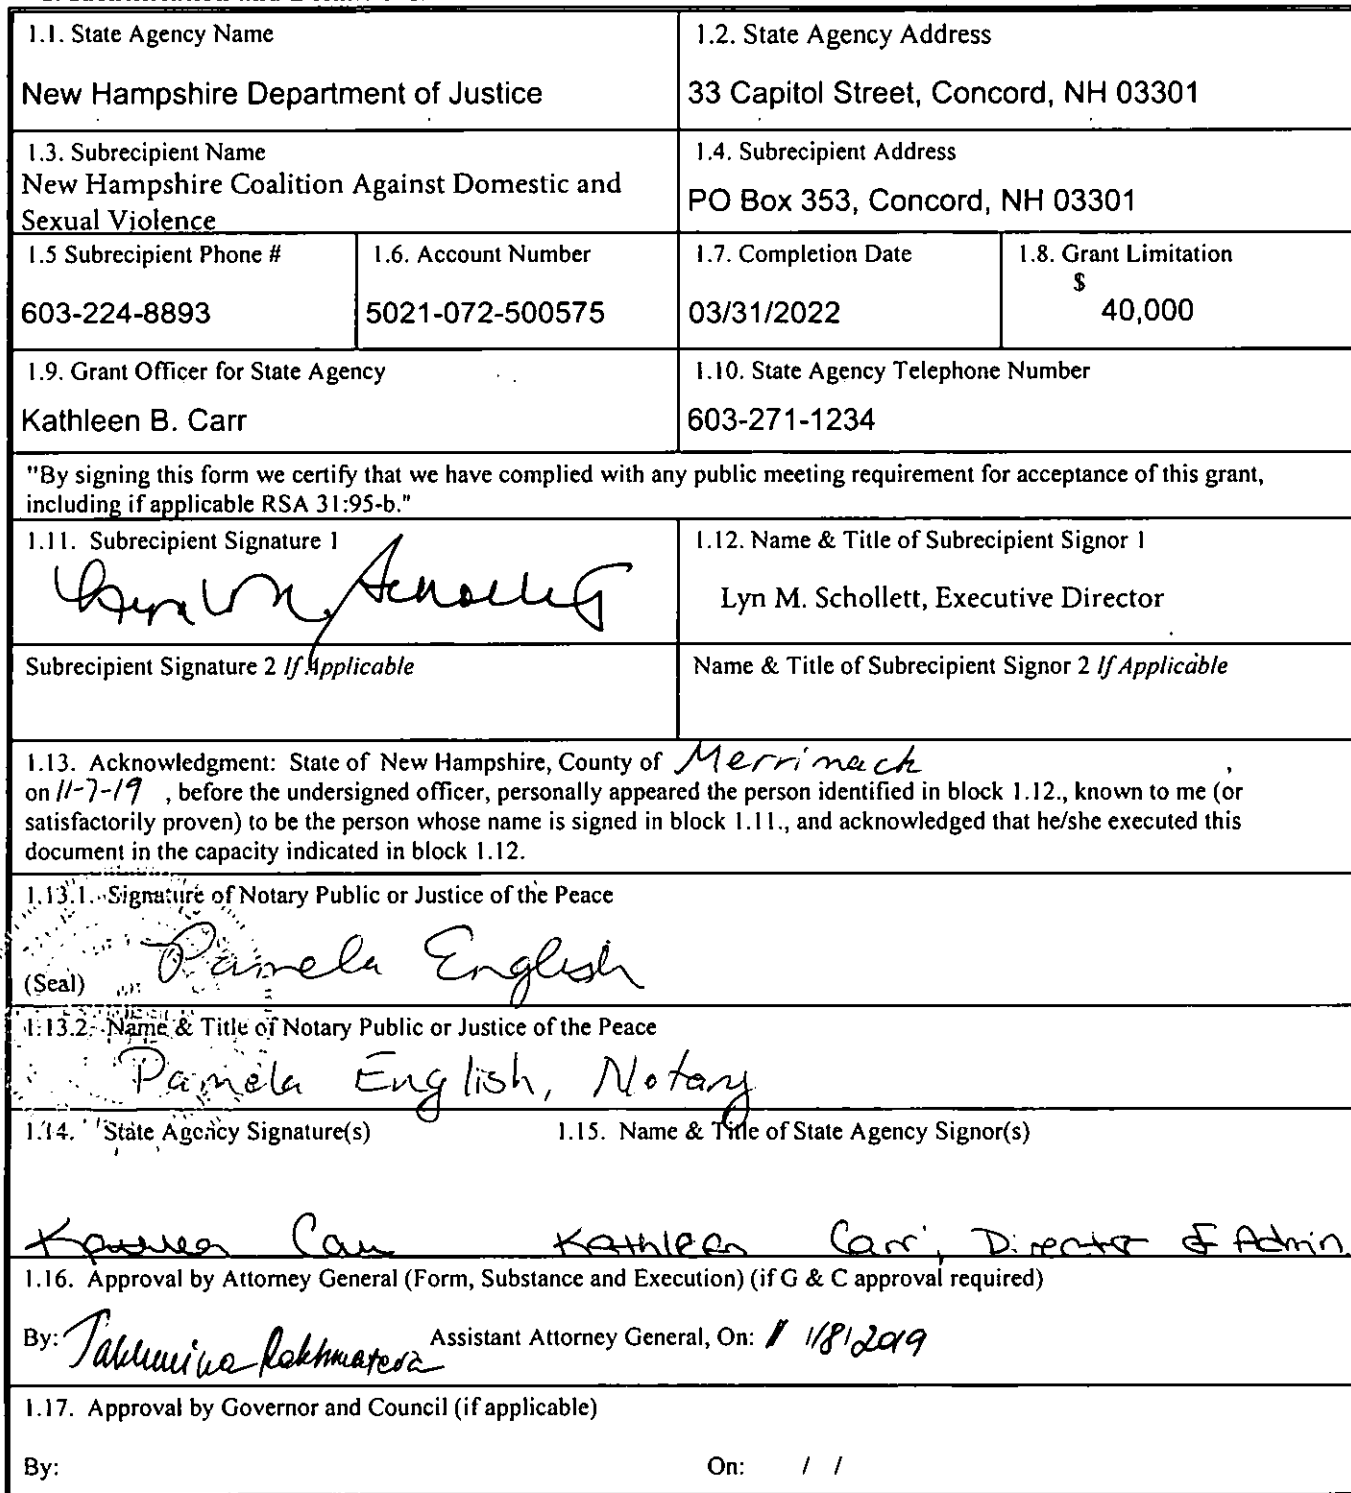 1.1. State Agency Name
New Hampshire Department of Justice
1.2. State Agency Address
33 Capitol Street, Concord, NH 03301
1.3. Subrecipient Name
New Hampshire Coalition Against Domestic and
Sexual Violence
1.4. Subrecipient Address
PO Box 353, Concord, NH 03301
1.5 Subrecipient Phone #
603-224-8893
1.6. Account Number
5021-072-500575
1.7. Completion Date
03/31/2022
1.8. Grant Limitation
$
40,000
1.9. Grant Officer for State Agency
Kathleen B. Carr
1.10. State Agency Telephone Number
603-271-1234
"By signing this form we certify that we have complied with any public meeting requirement for acceptance of this grant,
including if applicable RSA 31:95-b."
1.11. Subrecipient Signature 1
1.12. Name & Title of Subrecipient Signor 1
Lyn M. Schollett, Executive Director
Subrecipient Signature 2 If Applicable
Name & Title of Subrecipient Signor 2 If Applicable
1.13. Acknowledgment: State of New Hampshire, County of Merrimack ,
on 11-7-19 , before the undersigned officer, personally appeared the person identified in block 1.12., known to me (or
satisfactorily proven) to be the person whose name is signed in block 1.11., and acknowledged that he/she executed this
document in the capacity indicated in block 1.12.
1.13.1. Signature of Notary Public or Justice of the Peace
Pamela English
(Seal)
1.13.2. Name & Title of Notary Public or Justice of the Peace
Pamela English, Notary
1.14. State Agency Signature(s)
1.15. Name & Title of State Agency Signor(s)
Kathleen Carr
Kathleen Carr, Director of Admin.
1.16. Approval by Attorney General (Form, Substance and Execution) (if G & C approval required)
By: Takhmina Rakhmatova Assistant Attorney General, On: 11/8/2019
1.17. Approval by Governor and Council (if applicable)
By: On: / /